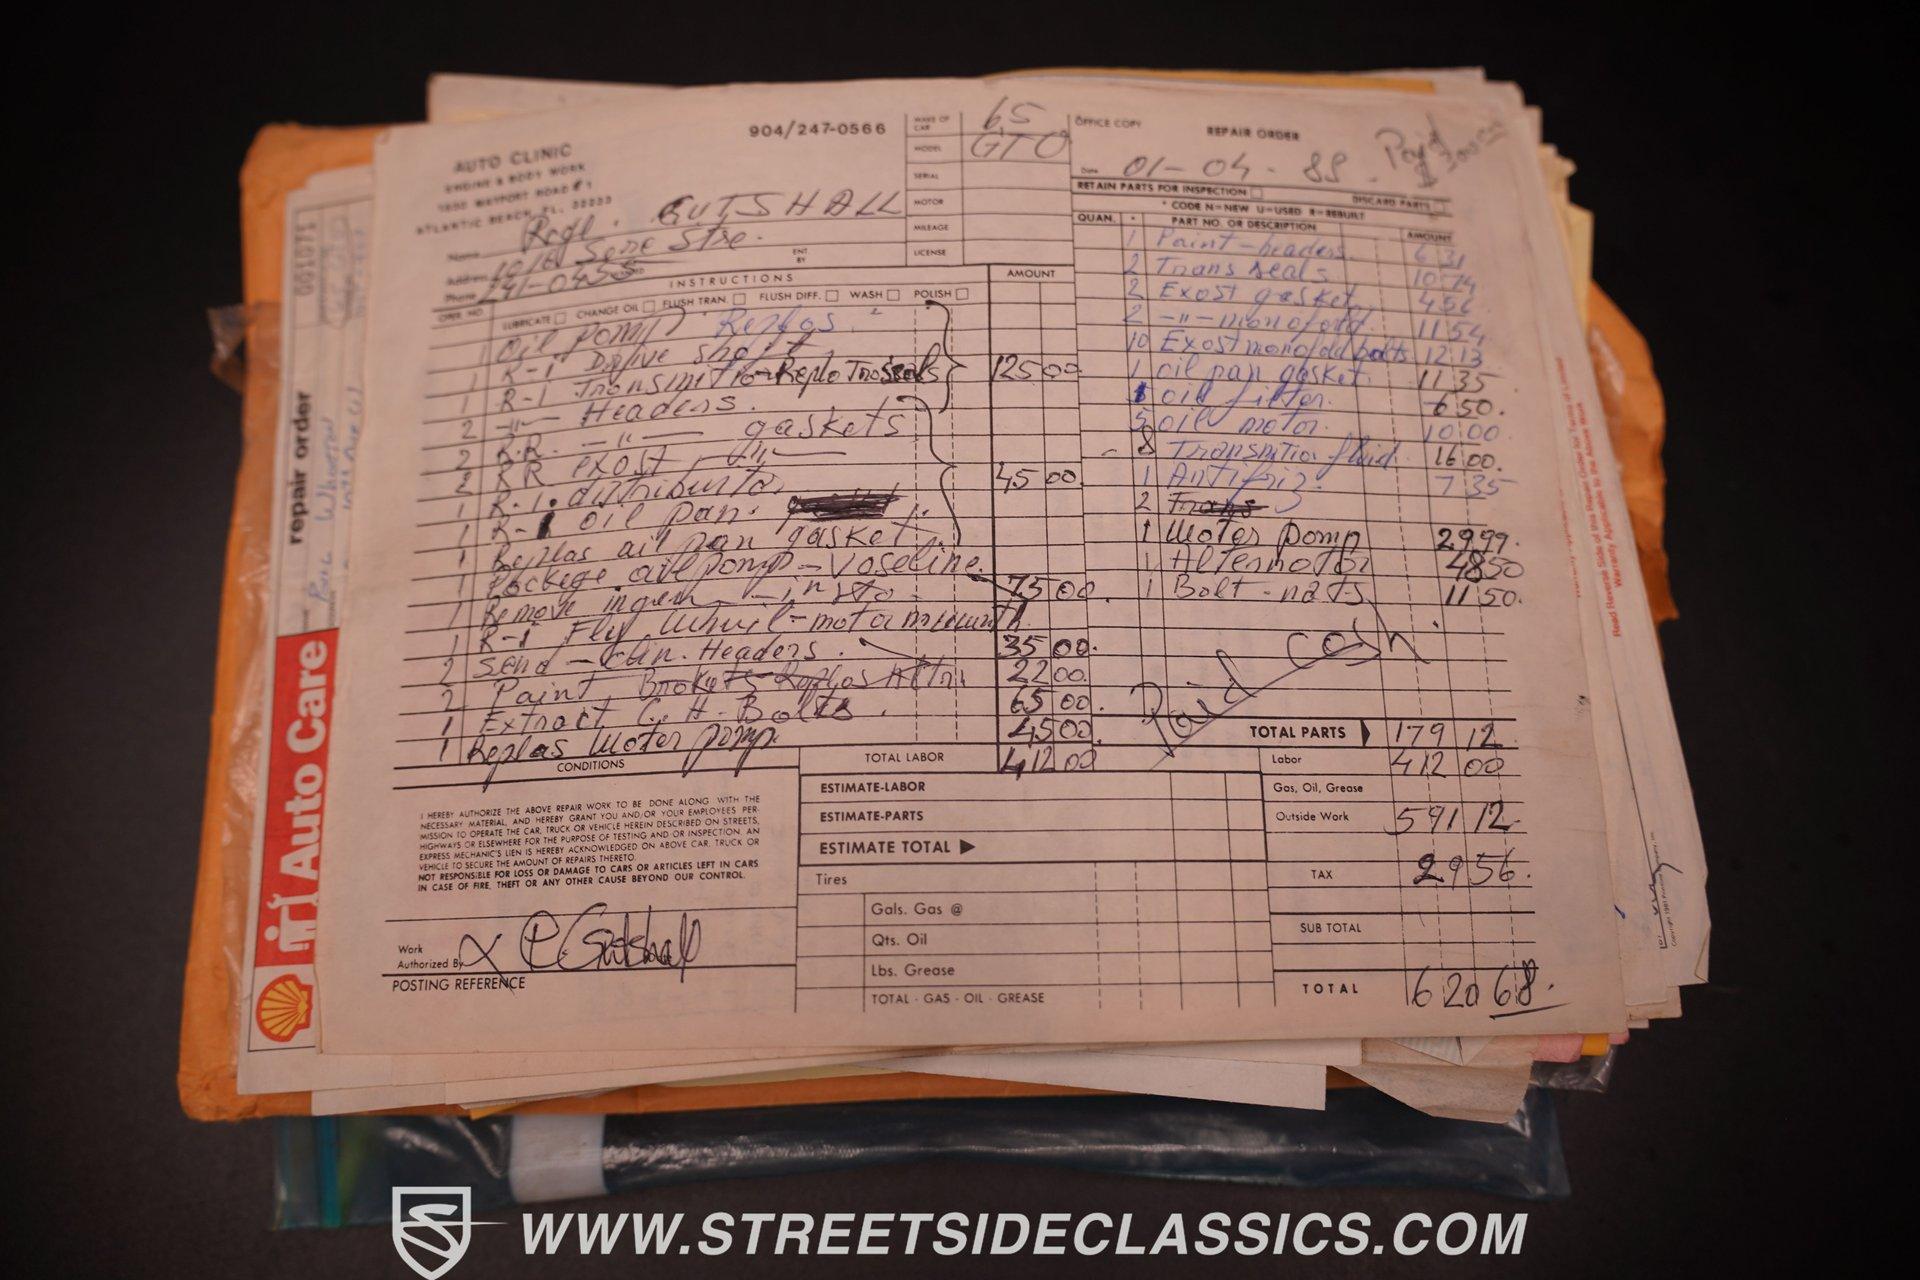 904/247-0566
AUTO CLINIC
ENGINE & BODY WORK
1850 MAYPORT ROAD #1
ATLANTIC BEACH, FL. 32233
MAKE OF CAR 65
MODEL GTO
SERIAL
MOTOR
MILEAGE
LICENSE
OFFICE COPY
REPAIR ORDER
Paid
$ 300.00
Date 01-04-88
RETAIN PARTS FOR INSPECTION
DISCARD PARTS
* CODE N=NEW U=USED R=REBUILT
Name GUTSHALL
Address
Phone 241-0455
ENT. BY
INSTRUCTIONS
AMOUNT
OPER. NO.
LUBRICATE
CHANGE OIL
FLUSH TRAN.
FLUSH DIFF.
WASH
POLISH
1 Oil pomp Replas.
1 R-1 Drive shaft
1 R-1 Transmitio-Replo Tra seals 125 00
2 -"- Headers.
2 R.R. -"- gaskets
2 RR exost -"-
1 R-1. distributor 45 00
1 R-1 oil pan.
1 Replas oil pan gasket.
1 Pockege oil pomp - Voseline.
1 Remove ingen - insto - 75 00.
1 R-1 Fly Whuil-motor mount
2 Send - Headers. 35 00.
2 Paint, Brokets Replas Altn. 22 00.
1 Extract C. H- Bolts. 65 00.
1 Replas Woter pomp. 45 00.
TOTAL LABOR 412 00
QUAN.
*
PART NO. OR DESCRIPTION
AMOUNT
1 Paint-headers. 6 31
2 Trans seals 10 74
2 Exost gasket, 4 56
2 -"- monofold. 11 54
10 Exost monofold bolts 12 13
1 oil pan gasket. 11 35
1 oil filter. 6 50.
5 oil motor. 10 00
8 Transmitio fluid. 16 00.
1 Antifriz. 7 35
2 Trans
1 Woter pomp 29 99.
1 Alternotor 48 50
1 Bolt-nats 11 50.
Paid cash.
TOTAL PARTS 179 12
Labor 412 00
Gas, Oil, Grease
Outside Work 591 12
TAX 29 56.
SUB TOTAL
TOTAL 620 68.
CONDITIONS
I HEREBY AUTHORIZE THE ABOVE REPAIR WORK TO BE DONE ALONG WITH THE
NECESSARY MATERIAL, AND HEREBY GRANT YOU AND/OR YOUR EMPLOYEES PER-
MISSION TO OPERATE THE CAR, TRUCK OR VEHICLE HEREIN DESCRIBED ON STREETS,
HIGHWAYS OR ELSEWHERE FOR THE PURPOSE OF TESTING AND OR INSPECTION. AN
EXPRESS MECHANIC'S LIEN IS HEREBY ACKNOWLEDGED ON ABOVE CAR, TRUCK OR
VEHICLE TO SECURE THE AMOUNT OF REPAIRS THERETO.
NOT RESPONSIBLE FOR LOSS OR DAMAGE TO CARS OR ARTICLES LEFT IN CARS
IN CASE OF FIRE, THEFT OR ANY OTHER CAUSE BEYOND OUR CONTROL.
ESTIMATE-LABOR
ESTIMATE-PARTS
ESTIMATE TOTAL
Tires
Gals. Gas @
Qts. Oil
Lbs. Grease
TOTAL - GAS - OIL - GREASE
Work Authorized By X P Gutshall
POSTING REFERENCE
001075
repair order
Auto Care
Read Reverse Side of this Repair Order for Terms of Limited
Warranty Applicable to the Above Work
WWW.STREETSIDECLASSICS.COM